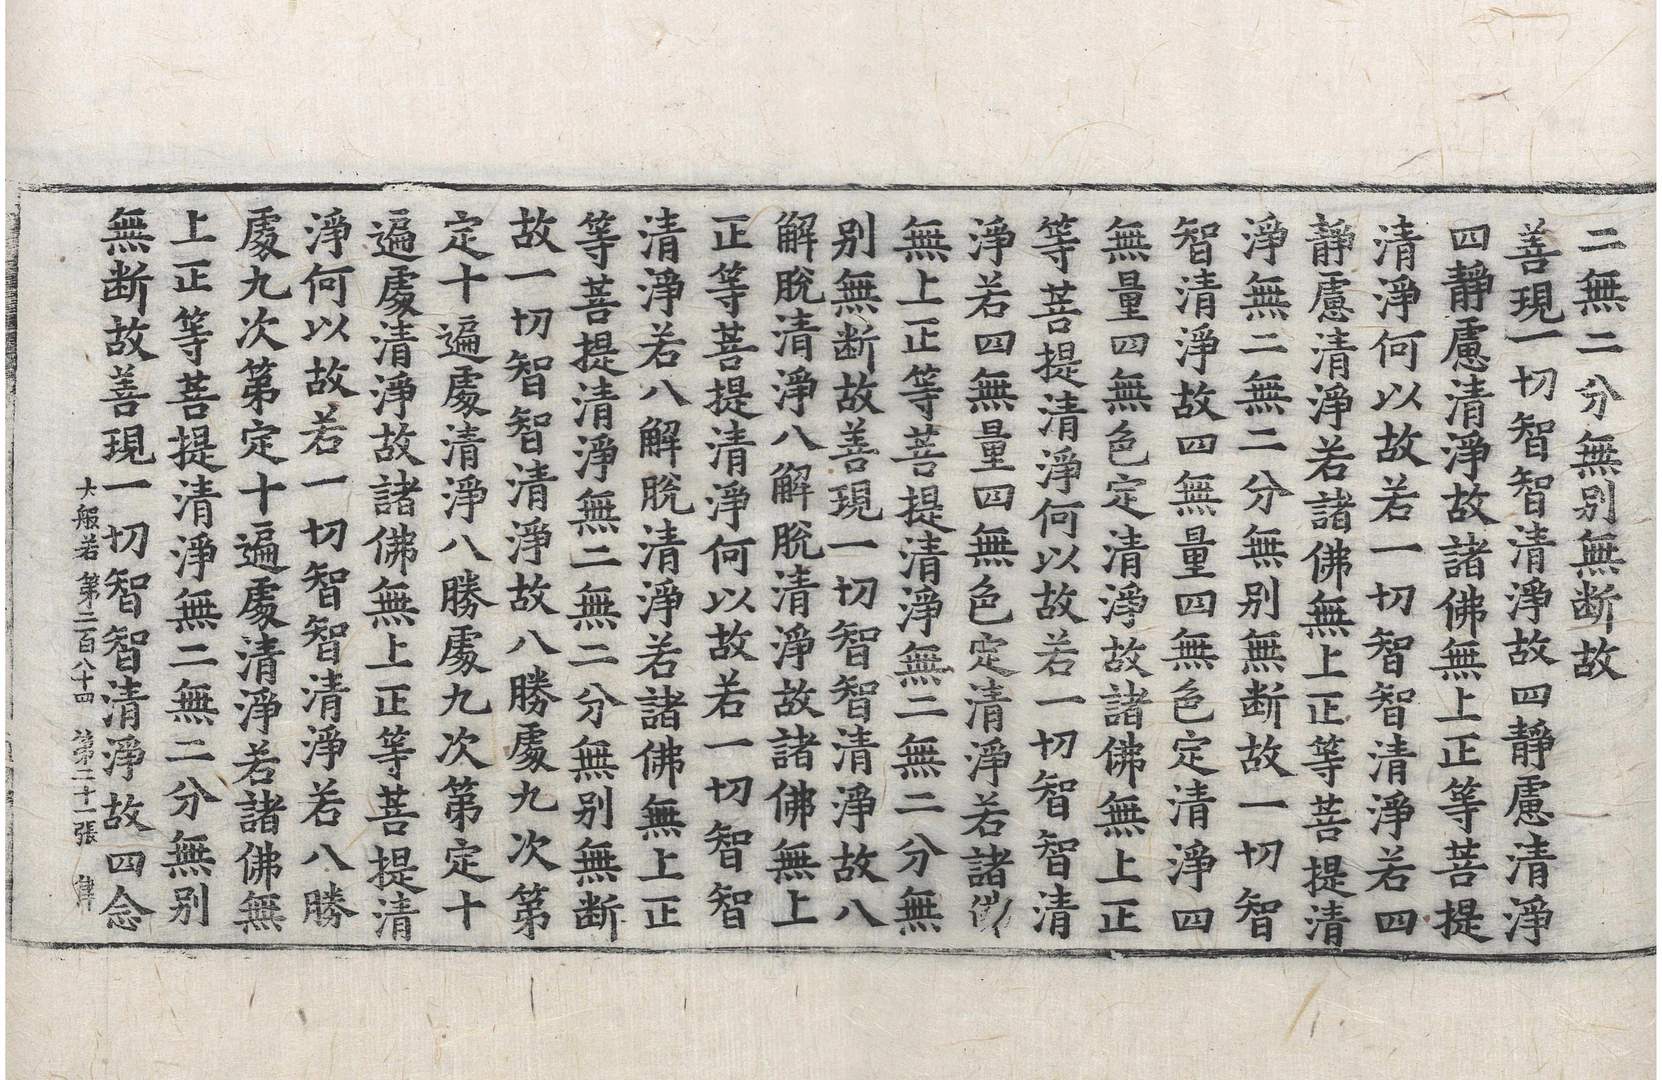 二無二分無別無断故
善現一切智智清淨故四靜慮清淨
四靜慮清淨故諸佛無上正等菩提
清淨何以故若一切智智清淨若四
靜慮清淨若諸佛無上正等菩提清
淨無二無二分無別無断故一切智
智清淨故四無量四無色定清淨四
無量四無色定清淨故諸佛無上正
等菩提清淨何以故若一切智智清
淨若四無量四無色定清淨若諸佛
無上正等菩提清淨無二無二分無
別無断故善現一切智智清淨故八
解脫清淨八解脫清淨故諸佛無上
正等菩提清淨何以故若一切智智
清淨若八解脫清淨若諸佛無上正
等菩提清淨無二無二分無別無断
故一切智智清淨故八勝處九次第
定十遍處清淨八勝處九次第定十
遍處清淨故諸佛無上正等菩提清
淨何以故若一切智智清淨若八勝
處九次第定十遍處清淨若諸佛無
上正等菩提清淨無二無二分無別
無断故善現一切智智清淨故四念
大般若第二百八十四 第二十一張